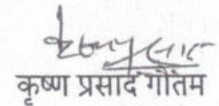 कृष्ण प्रसाद गौतम